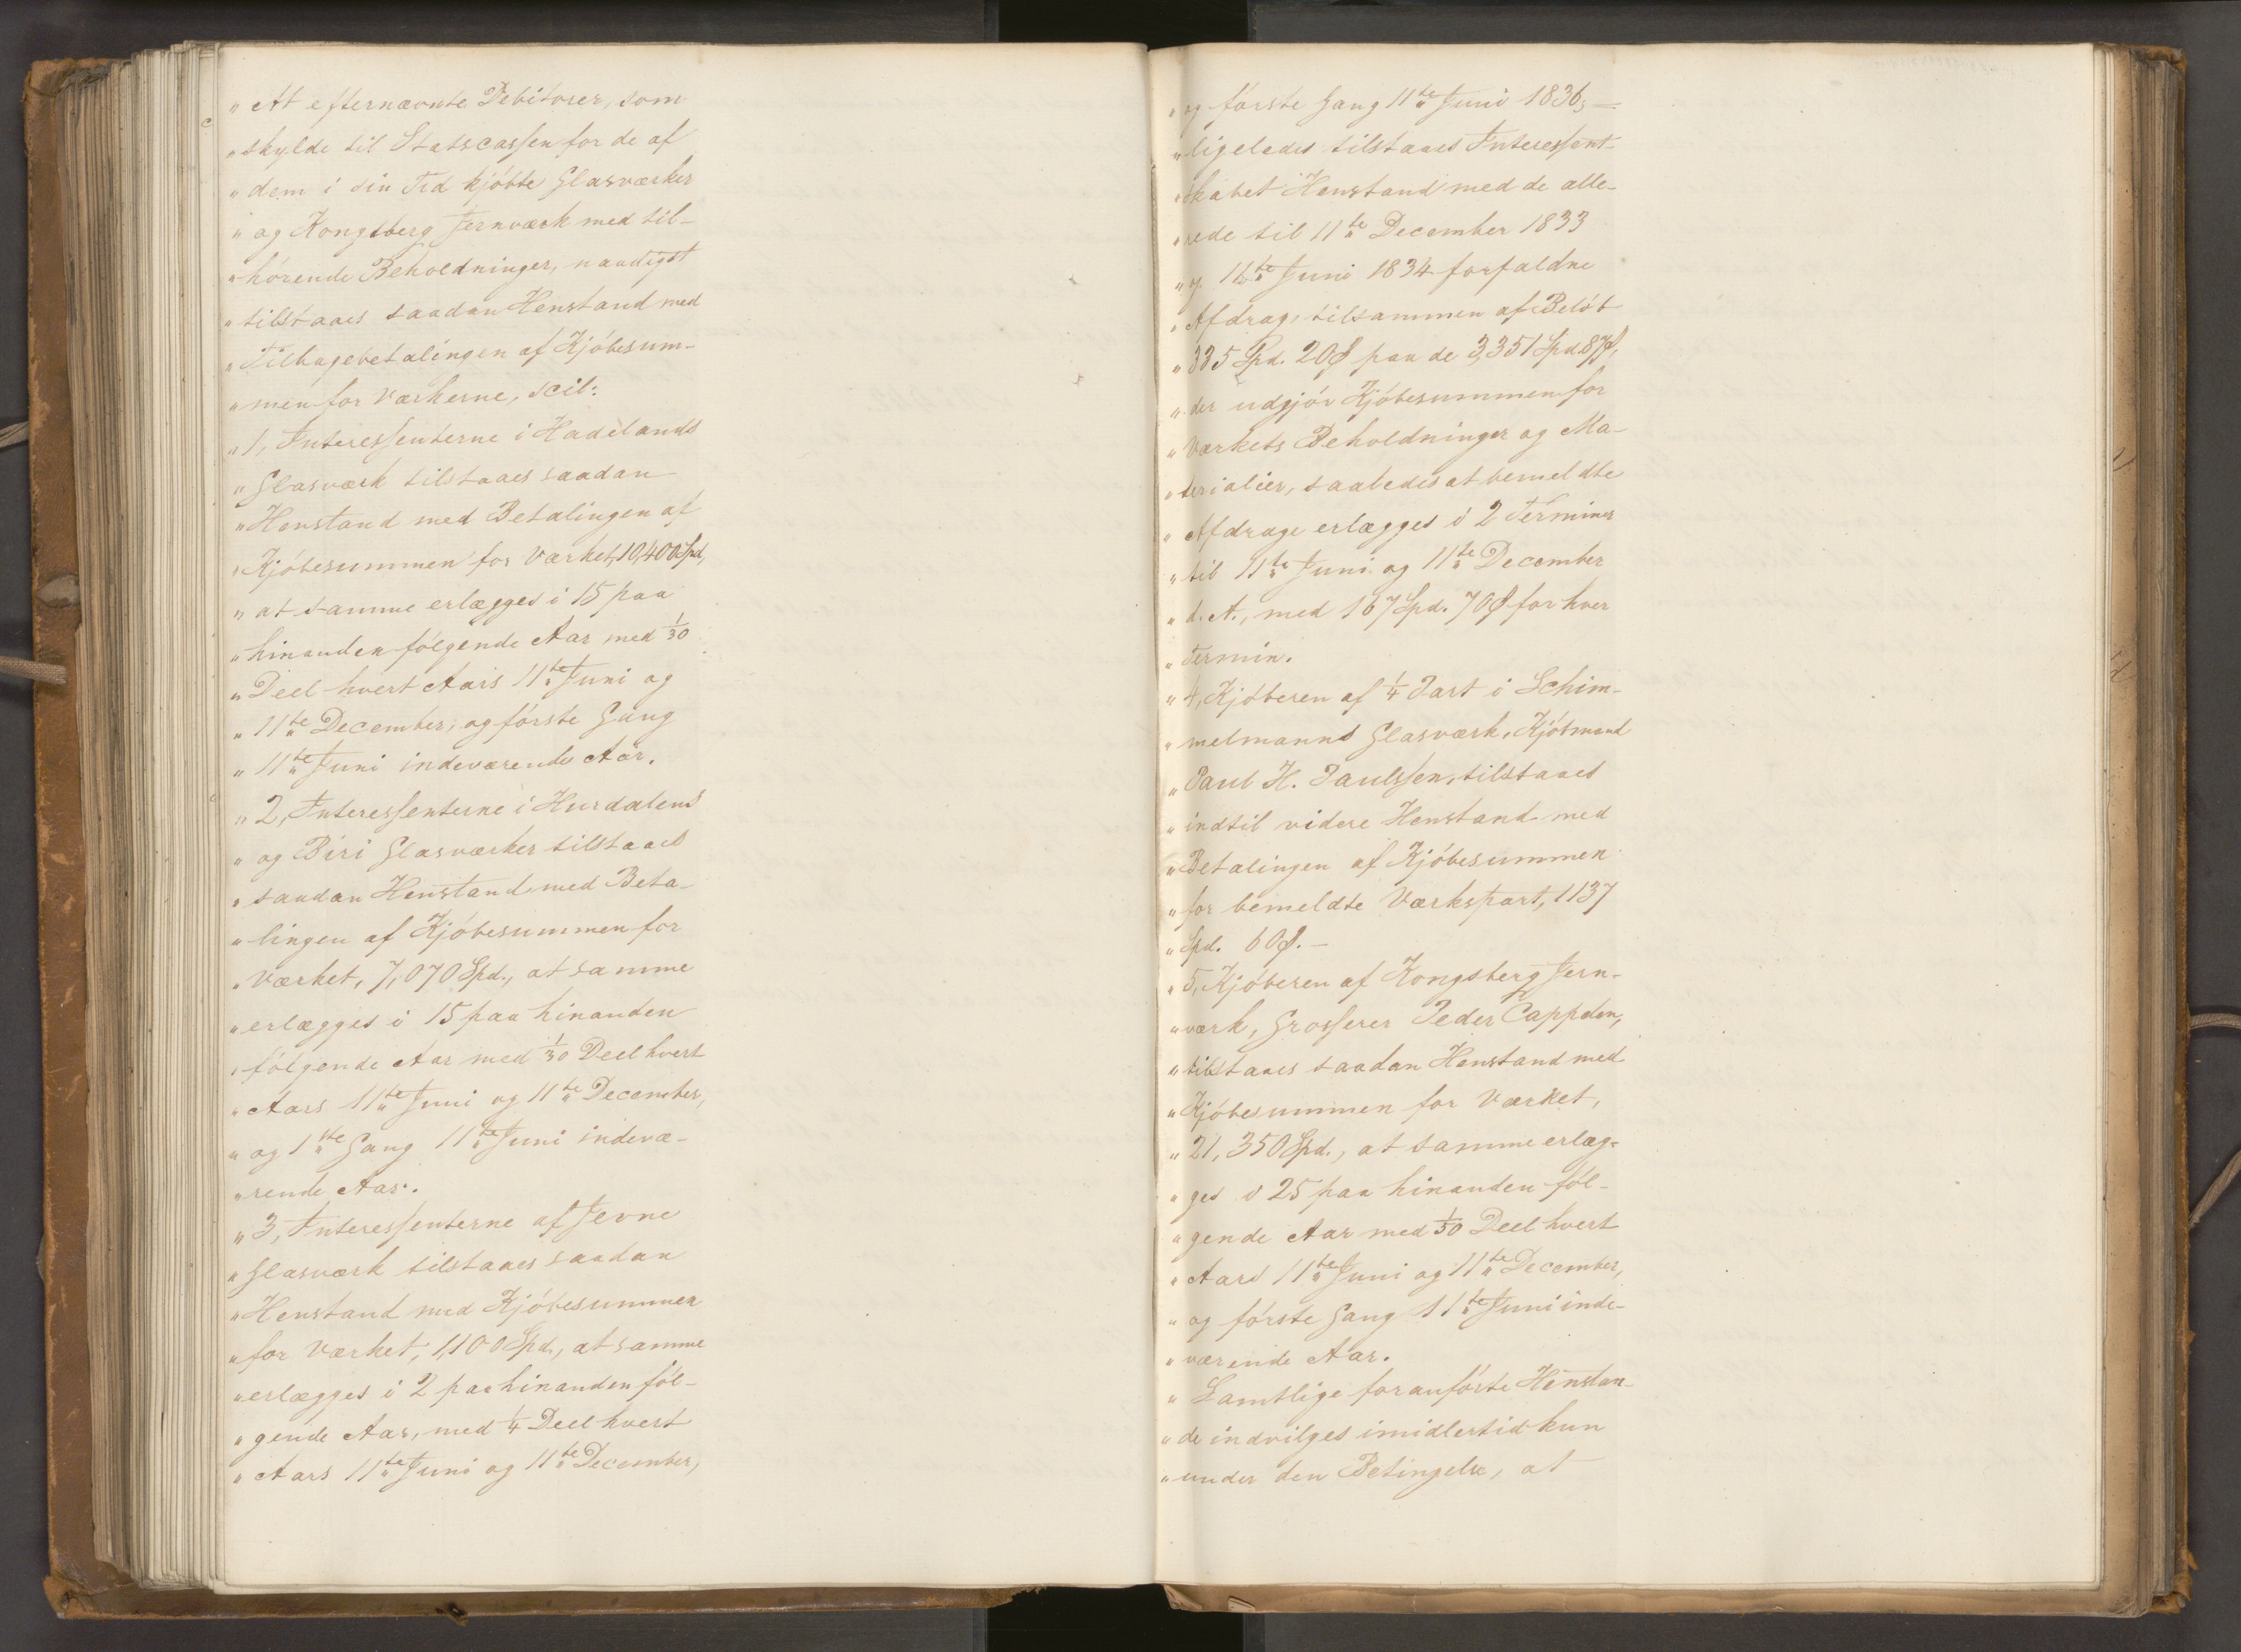 „ At efternævnte Debitorer, som
„ skylde til Statscassen for de af
„ dem i sin Tid kjöbte Glasværker
„ og Kongsberg Jernværk med til-
„ hörende Beholdninger, naadigst
„ tilstaaes saadan Henstand med
„ Tilbagebetalingen af Kjöbesum-
„ men for Værkerne, scil:
„ 1, Interessenterne i Hadelands
„ Glasværk tilstaaes saadan
„ Henstand med Betalingen af
„ Kjöbesummen for Værket, 10,400 Spd,
„ at samme erlægges i 15 paa
„ hinanden følgende Aar med 1/30
„ Deel hvert Aars 11te Juni og
„ 11te December, og förste Gang
„ 11te Juni indeværende Aar.
„ 2, Interessenterne i Hurdalens
„ og Biri Glasværker tilstaaes
„ saadan Henstand med Beta-
„ lingen af Kjöbesummen for
„ Værket, 7,070 Spd., at samme
„ erlægges i 15 paa hinanden
„ fölgende Aar med 1/30 Deel hvert
„ Aars 11te Juni og 11te December,
„ og 1ste Gang 11te Juni indevæ-
„ rende Aar.
„ 3, Interessenterne af Jevne
„ Glasværk tilstaaes saadan
„ Henstand med Kjöbesummen
„ for Værket, 1,100 Spd., at samme
„ erlægges i 2 paa hinanden föl-
„ gende Aar, med 1/4 Deel hvert
„ Aars 11te Juni og 11te December,
„ og förste Gang 11te Juni 1836; —
„ ligeledes tilstaaes Interessent-
„ skabet Henstand med de alle-
„ rede til 11te December 1833
„ og 16te Juni 1834 forfaldne
„ Afdrag, tilsammen af Belöb
„ 335 Spd. 20 ß paa de 3,351 Spd. 87 ß,
„ der udgjör Kjöbesummen for
„ Værkets Beholdninger og Ma-
„ terialier, saaledes at bemeldte
„ Afdrage erlægges i 2 Terminer
„ til 11te Juni og 11te December
„ d. A., med 167 Spd. 70 ß for hver
„ Termin.
„ 4, Kjöberen af 1/4 Part i Schim-
„ melmanns Glasværk, Kjöbmand
„ Paul H. Paulssen, tilstaaes
„ indtil videre Henstand med
„ Betalingen af Kjöbesummen
„ for bemeldte Værkspart, 1137
„ Spd. 60 ß. —
„ 5, Kjöberen af Kongsberg Jern-
„ værk, Grosserer Peder Cappelen,
„ tilstaaes saadan Henstand med
„ Kjöbesummen for Værket,
„ 21,350 Spd., at samme erlæg-
„ ges i 25 paa hinanden föl-
„ gende Aar med 1/50 Deel hvert
„ Aars 11te Juni og 11te December,
„ og förste Gang 11te Juni inde-
„ værende Aar.
„ Samtlige foranförte Henstan-
„ de indvilges imidlertid kun
„ under den Betingelse, at